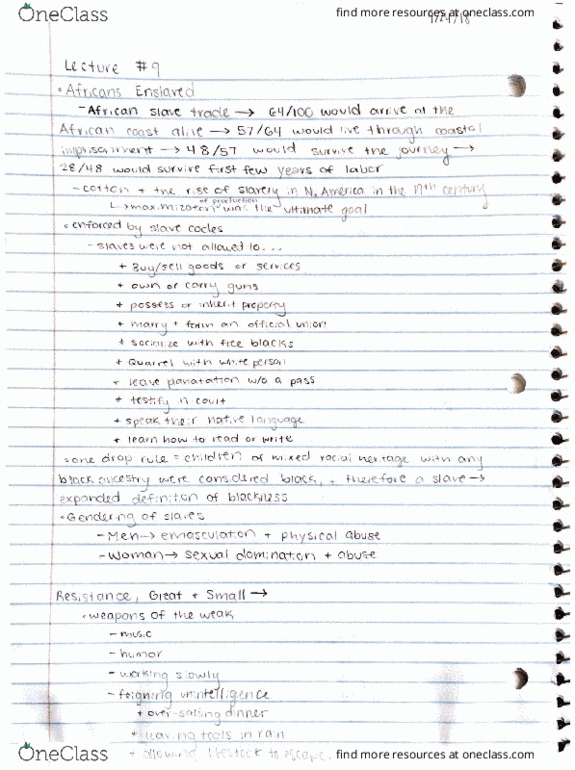 OneClass
find more resources at oneclass.com
Lecture #9
• Africans Enslaved
- African slave trade → 64/100 would arrive at the
African coast alive → 57/64 would live through coastal
imprisonment → 48/57 would survive the journey →
28/48 would survive first few years of labor
- cotton + the rise of slavery in N. America in the 19th century
of production
↳ maximization was the ultimate goal
• enforced by slave codes
- slaves were not allowed to...
+ Buy/sell goods or services
+ own or carry guns
+ possess or inherit property
+ marry + form an official union
+ socialize with free blacks
+ Quarrel with white person
+ leave panatation w/o a pass
+ testify in court
+ speak their native language
+ learn how to read or write
• one drop rule = children of mixed racial heritage with any
black ancestry were considered black, + therefore a slave →
expanded definition of blackness
• Gendering of slaves
- Men → emasculation + physical abuse
- Woman → sexual domination + abuse
Resistance, Great + Small →
• weapons of the weak
- music
- humor
- working slowly
- feigning unintelligence
+ over-salting dinner
+ leaving tools in rain
+ allowing livestock to escape
OneClass
find more resources at oneclass.com